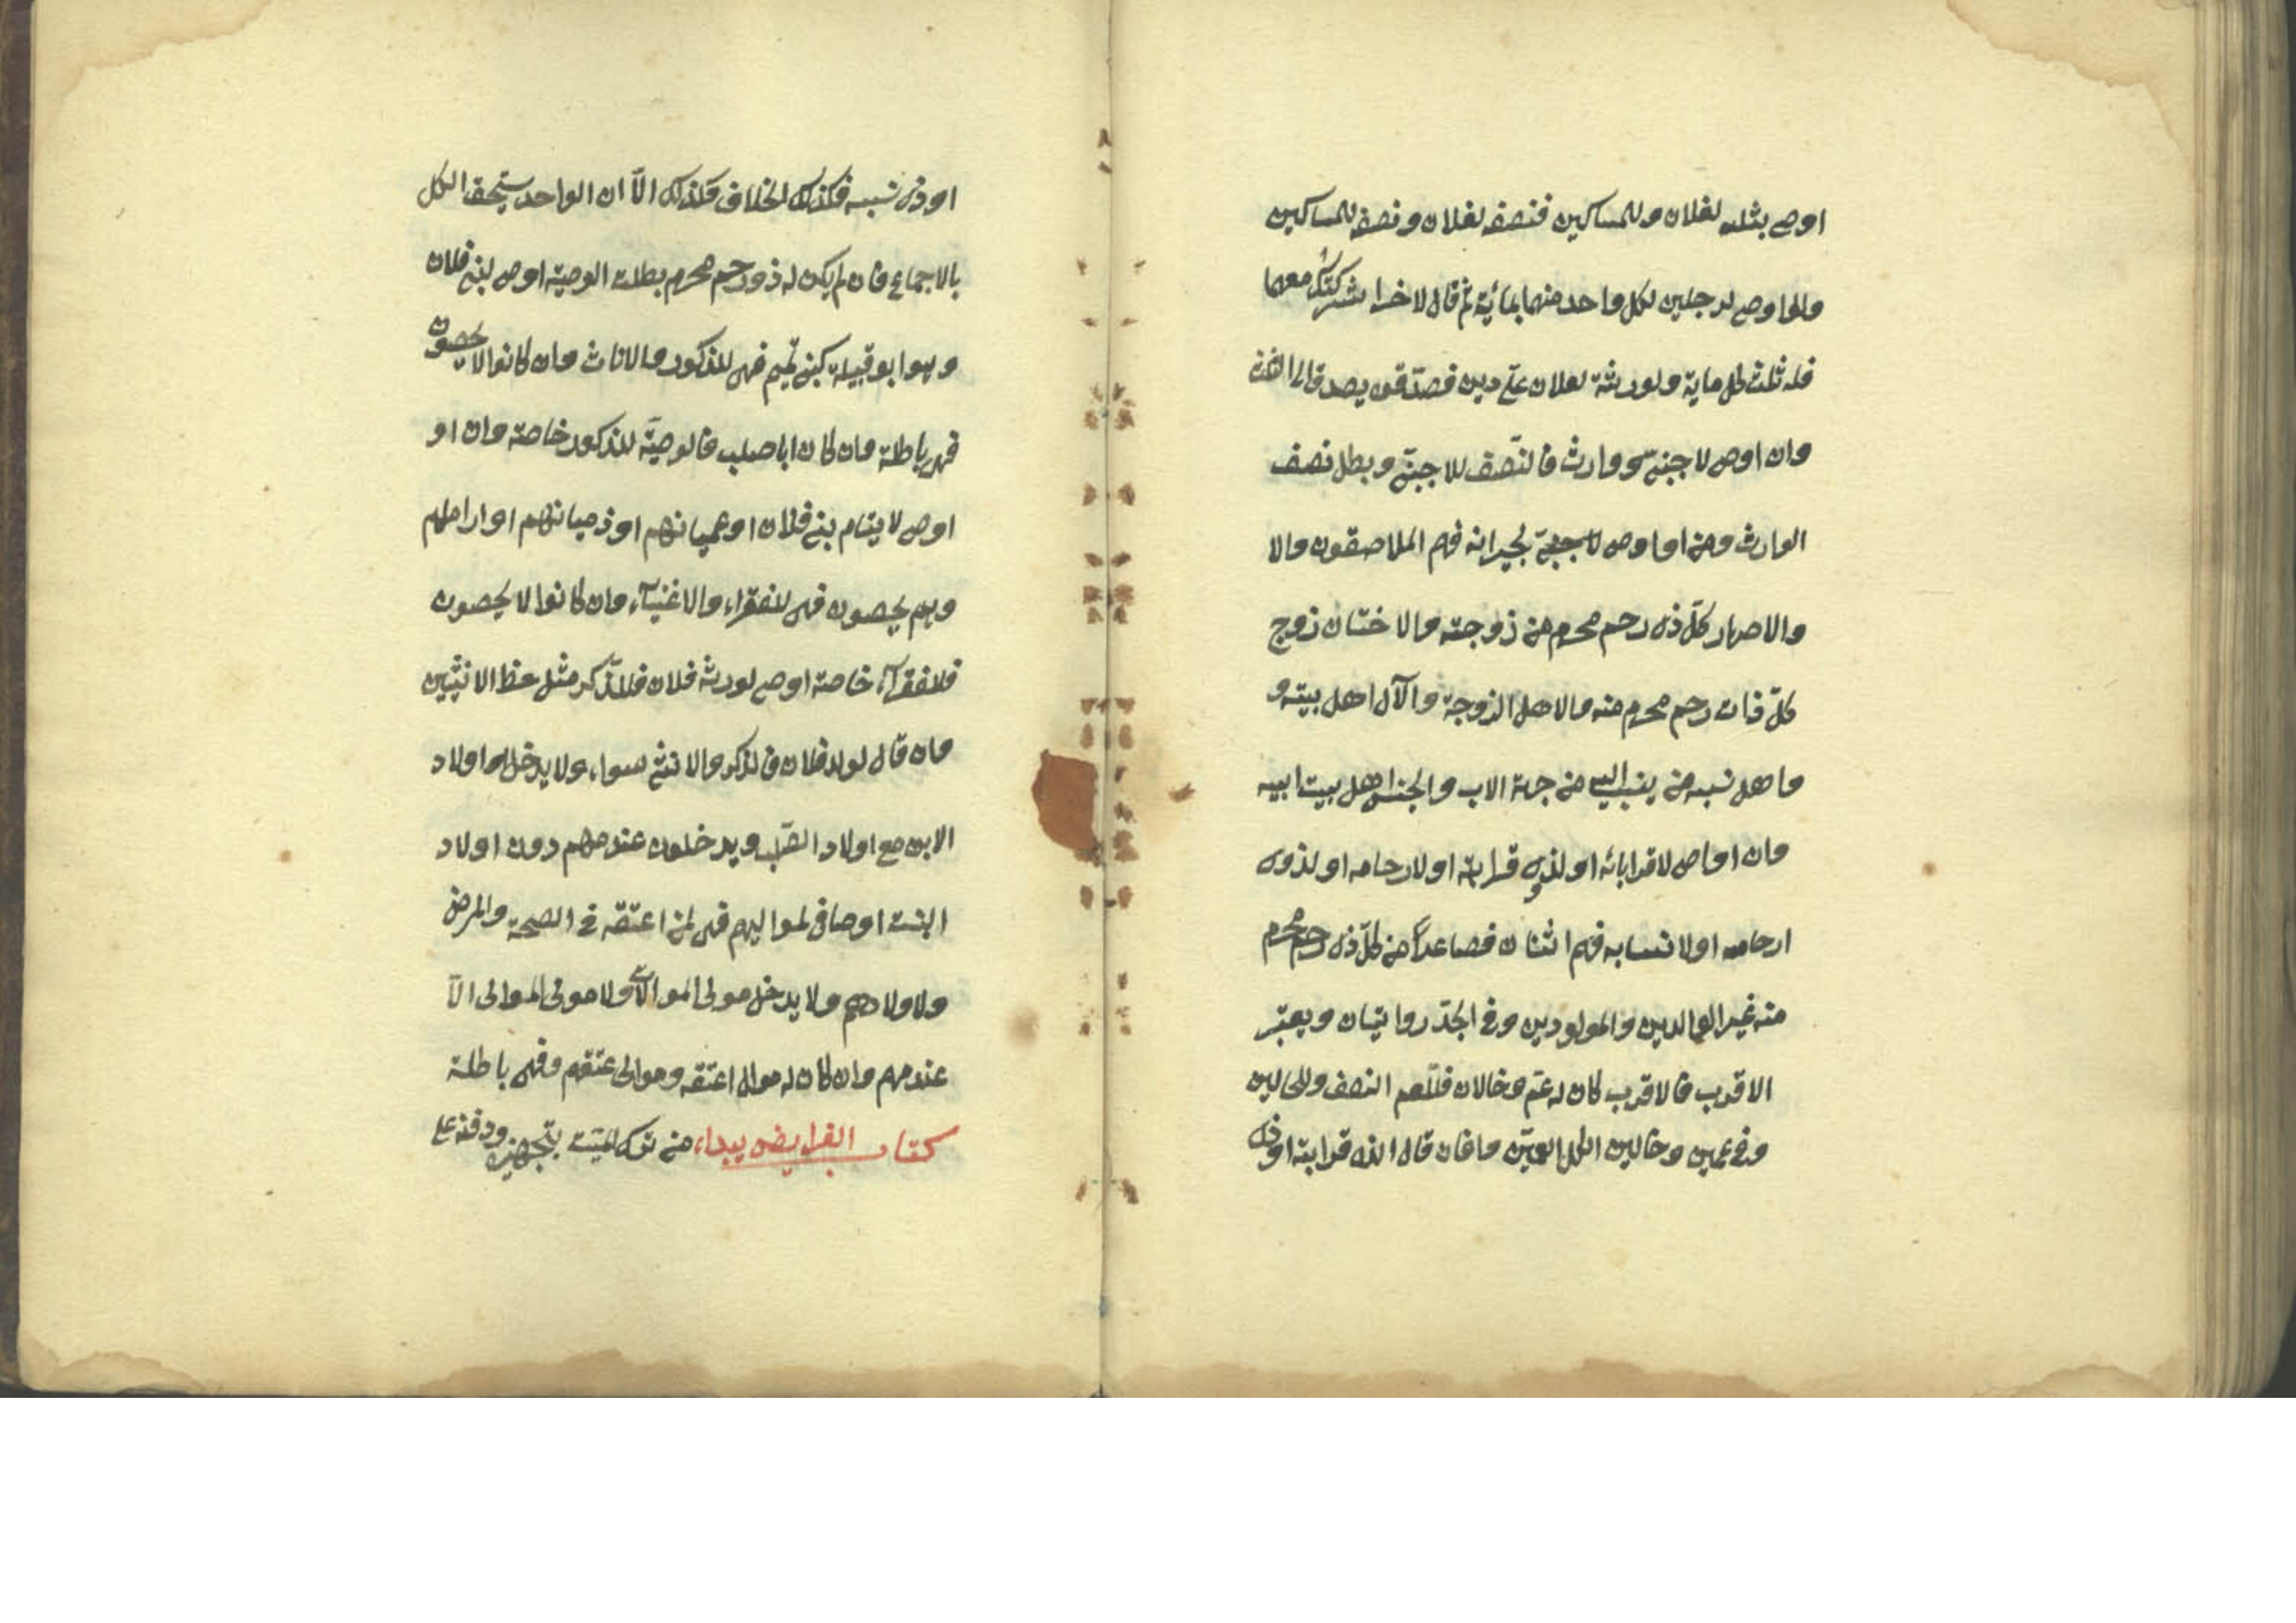 اوصى بثلثه لفلان وللمساكين فنصفه لفلان ونصفه للمساكين
ولو اوصى لرجلين لكل واحد منهما بمائة ثم قال لاخر اشركتك معهما
فله ثلث كل ماية ولورثة لفلان على دين فصدقوه يصدق الى الثلث
وان اوصى لاجنبى ووارث فالنصف للاجنبى وبطل نصف
الوارث ومن اوصى لجيرانه فهم الملاصقون والا
والاصهار كل ذى رحم محرم من زوجته والاختان زوج
كل ذات رحم محرم منه والاهل الزوجة والآل اهل بيته و
واهل نسبه من ينسب اليه من جهة الاب والجنس اهل بيت ابيه
وان اوصى لاقربائه او لذوى قرابته او لارحامه او لذوى
ارحامه او لانسابه فهم اثنان فصاعداً من كل ذى رحم محرم
منه غير الوالدين والمولودين وفى الجد روايتان ويعتبر
الاقرب فالاقرب كان له عم وخالان فللعم النصف وللخالين
وفى عمين وخالين الكل للعمين وان قال لذى قرابته او ذى
او ذى نسبه فكذلك الخلاف فكذلك الاّ ان الواحد يستحق الكل
بالاجماع فان لم يكن له ذو رحم محرم بطلت الوصية اوصى لبنى فلان
وهو ابو قبيلة كبنى تميم فهى للذكور والاناث وان كانوا لا يحصون
فهى باطلة وان كان ابا صلب فالوصيّة للذكور خاصة وان او
اوصى لايتام بنى فلان او عميانهم او زميانهم او اراملهم
وهم يحصون فهى للفقراء والاغنيآء وان كانوا لا يحصون
فلافقرآء خاصة اوصى لورثة فلان فللذّكر مثل حظ الانثيين
وان قال لولد فلان فالذكر والانثى سواء ولا يدخل اولاد
الابن مع اولاد الصّلب ويدخلون عند عدمهم دون اولاد
البنت اوصى لمواليهم فهى لمن اعتقه فى الصحة والمرض
ولاولادهم ولا يدخل مولى الموالاة ولا مولى الموالى الاّ
عند عدمهم وان كان له موال اعتقه وموالى عتقهم وفهى باطلة
كتاب الفرايض يبداء من تركة الميّت بتجهيزه ودفنه على